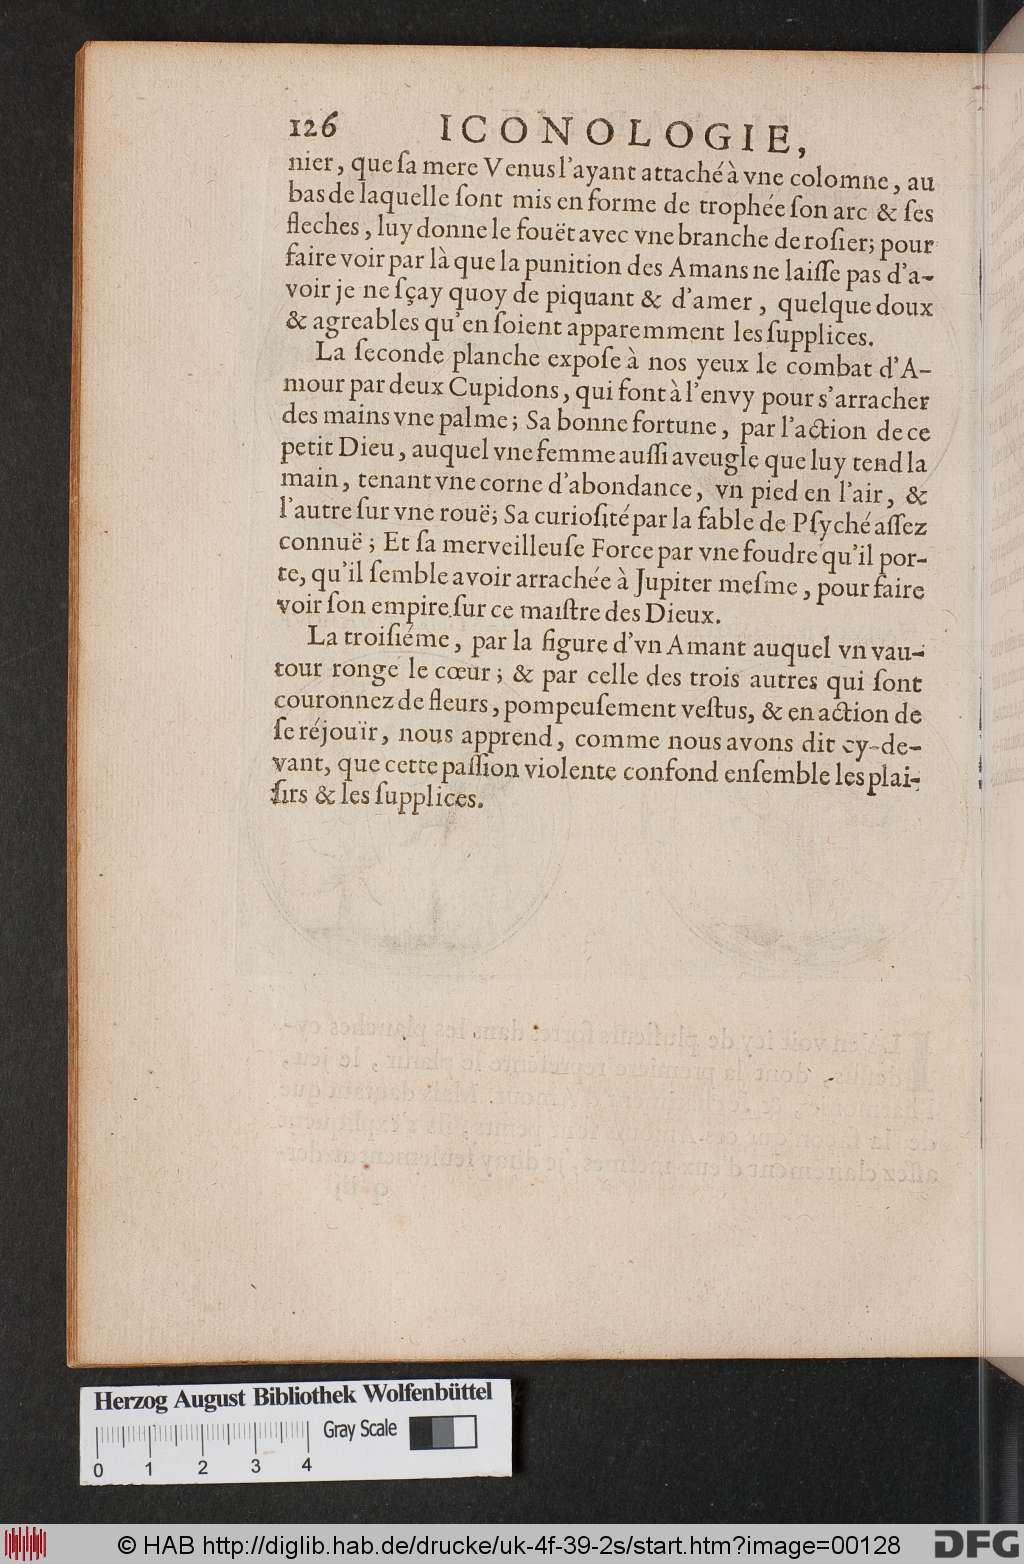 126 ICONOLOGIE,
nier, que ſa mere Venus l'ayant attaché à vne colomne, au
bas de laquelle ſont mis en forme de trophée ſon arc & ſes
fleches, luy donne le fouët avec vne branche de roſier; pour
faire voir par là que la punition des Amans ne laiſſe pas d'a-
voir je ne ſçay quoy de piquant & d'amer, quelque doux
& agreables qu'en ſoient apparemment les ſupplices.
La ſeconde planche expoſe à nos yeux le combat d'A-
mour par deux Cupidons, qui font à l'envy pour s'arracher
des mains vne palme; Sa bonne fortune, par l'action de ce
petit Dieu, auquel vne femme auſſi aveugle que luy tend la
main, tenant vne corne d'abondance, vn pied en l'air, &
l'autre ſur vne rouë; Sa curioſité par la fable de Pſyché aſſez
connuë; Et ſa merveilleuſe Force par vne foudre qu'il por-
te, qu'il ſemble avoir arrachée à Jupiter meſme, pour faire
voir ſon empire ſur ce maiſtre des Dieux.
La troiſiéme, par la figure d'vn Amant auquel vn vau-
tour ronge le cœur; & par celle des trois autres qui ſont
couronnez de fleurs, pompeuſement veſtus, & en action de
ſe réjouïr, nous apprend, comme nous avons dit cy-de-
vant, que cette paſſion violente confond enſemble les plai-
ſirs & les ſupplices.
Herzog August Bibliothek Wolfenbüttel
Gray Scale
0 1 2 3 4
© HAB http://diglib.hab.de/drucke/uk-4f-39-2s/start.htm?image=00128
DFG